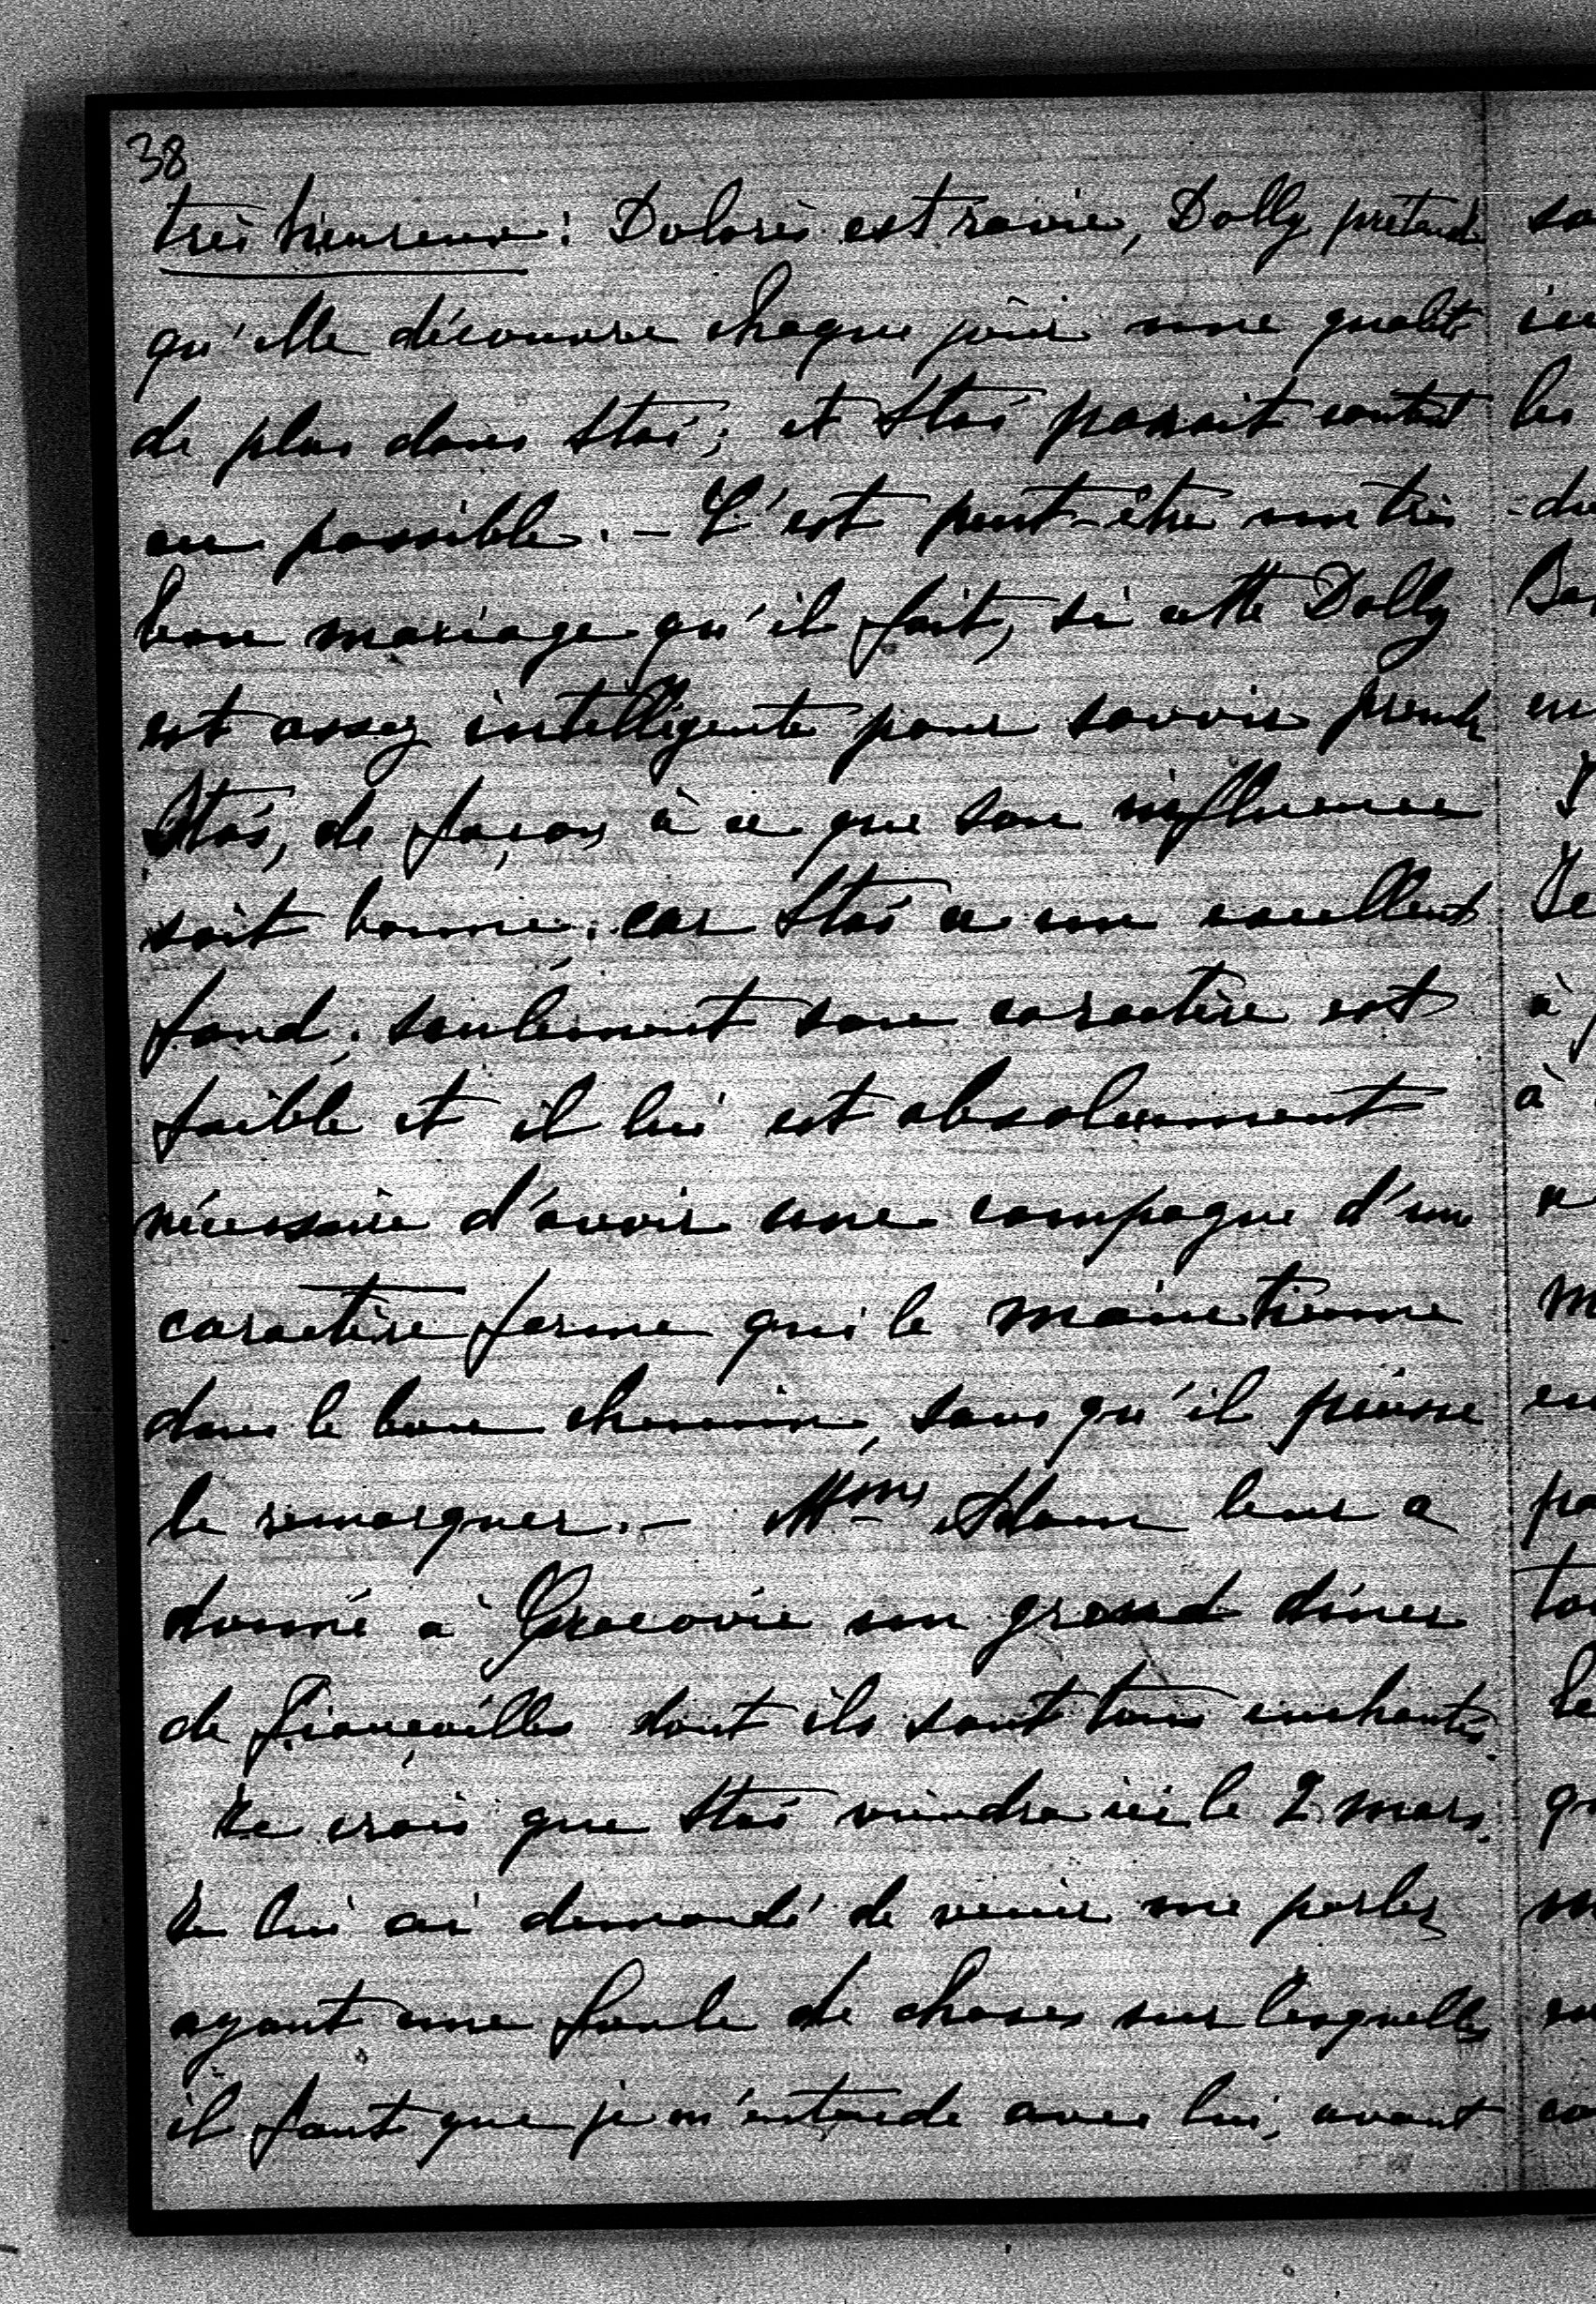 38
très heureux! Dolorès est ravie, Dolly prétend
qu'elle découvre chaque jour une qualité
de plus dans Stas; et Stas parait content
au possible. – C'est peut-être un très
bon mariage qu'il fait, si cette Dolly
est assez intelligente pour savoir prendre
Stas, de façon à ce que son influence
soit bonne; car Stas a un excellent
fond; seulement son caractère est
faible et il lui est absolument
nécessaire d'avoir une compagne d'un
caractère ferme qui le maintienne
dans le bon chemin, sans qu'il puisse
le remarquer. – Mme Adam leur a
donné à Cracovie un grand dîner
de fiançailles dont ils sont tous enchantés.
Je crois que Stas viendra ici le 2 mars.
Je lui ai demandé de venir me parler
ayant une foule de choses sur lesquelles
il faut que je m'entende avec lui, avant